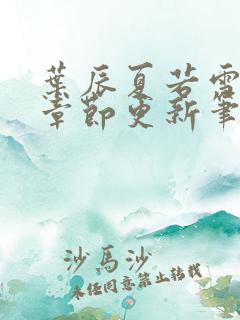 葉辰夏若雪
章節更新筆
沙馬沙
未经同意禁止转载